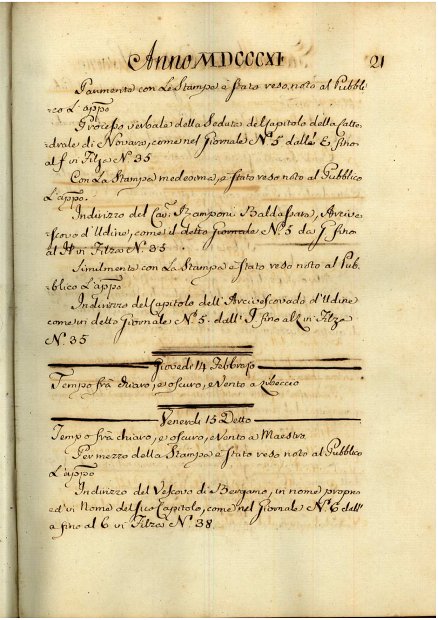 Anno MDCCCXI
21
Parimente con La Stampa è stato reso noto al Pubbli
co L'appo
Processo verbale della Seduta del Capitolo della Catte
drale di Novara, come nel Giornale N.º 5 dalla E sino
al f in Filza N.º 35
Con La Stampa medesima, è stato reso noto al Pubblico
L'appo.
Indirizzo del Cav. Ramponi Baldassara, Arcive
scovo d'Udine, come il detto Giornale N.º 5 da G sino
al H in Filza N.º 35
Similmente con La Stampa è stato reso noto al Pub
blico L'appo
Indirizzo del Capitolo dell'Arcivescovado d'Udine
come in detto Giornale N.º 5. dall' I sino al in Filza
N.º 35
Giovedi 14 Febbrajo
Tempo frà chiaro, e oscuro, e Vento a Libeccio
Venerdi 15 Detto
Tempo frà chiaro, e oscuro, e Vento a Maestro
Per mezzo della Stampa è stato reso noto al Pubblico
L'appo
Indirizzo del Vescovo di Bergamo, in nome proprio
ed in Nome del suo Capitolo, come nel Giornale N.º 6 dall'
a sino al 6 in Filza N.º 38.